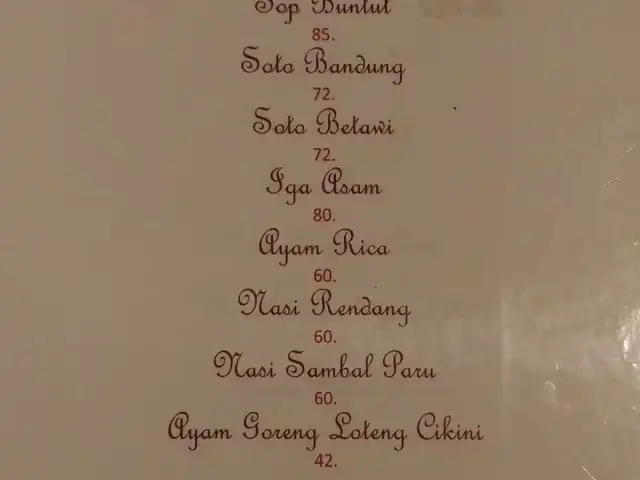 Sop Buntut
85.
Soto Bandung
72.
Soto Betawi
72.
Iga Asam
80.
Ayam Rica
60.
Nasi Rendang
60.
Nasi Sambal Paru
60.
Ayam Goreng Loteng Cikini
42.